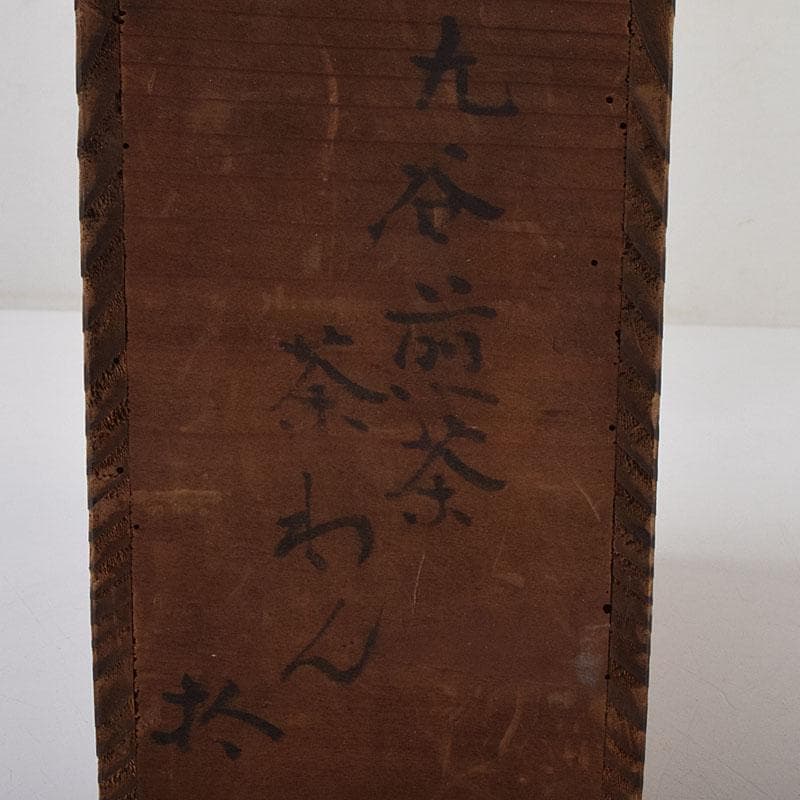 九谷煎茶
茶わん
拾